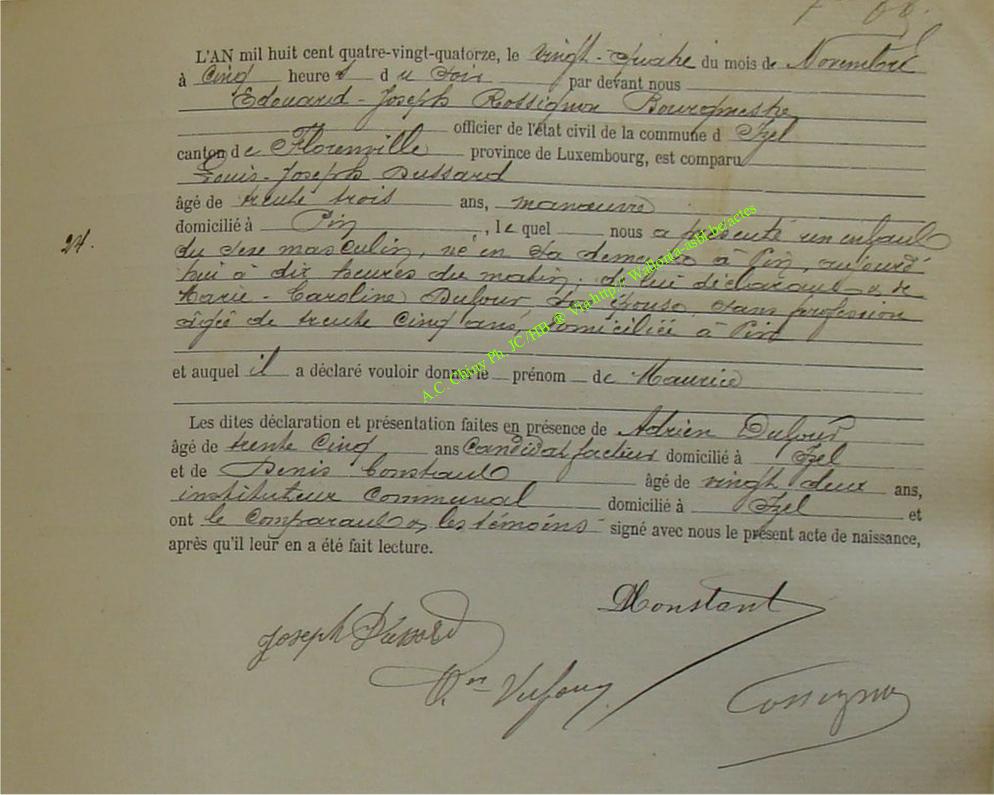 L'AN mil huit cent quatre-vingt-quatorze, le vingt-quatre du mois de Novembre
à Cinq heures du soir par devant nous
Edouard-Joseph Rossignon Bourgmestre
officier de l'état civil de la commune d Izel
canton de Florenville province de Luxembourg, est comparu
Louis-Joseph Dussard
âgé de trente trois ans, manœuvre
domicilié à Pin, le quel nous a présenté un enfant
24.
du sexe masculin, né en sa demeure à Pin, aujourd'
hui à dix heures du matin, de lui déclarant & de
Marie-Caroline Dufour, son épouse, sans profession
âgée de trente cinq ans, domiciliée à Pin
et auquel il a déclaré vouloir donner le prénom de Maurice
A.C. Chiny Ph. JC/HB ® Via http://Wallonia-asbl.be/actes
Les dites déclaration et présentation faites en présence de Adrien Dufour
âgé de trente Cinq ans Candidat facteur domicilié à Izel
et de Denis Constant âgé de vingt deux ans,
instituteur Communal domicilié à Izel et
ont le Comparant & les témoins signé avec nous le présent acte de naissance,
après qu'il leur en a été fait lecture.
DConstant
Joseph Dussard
Dufour
Rossignon